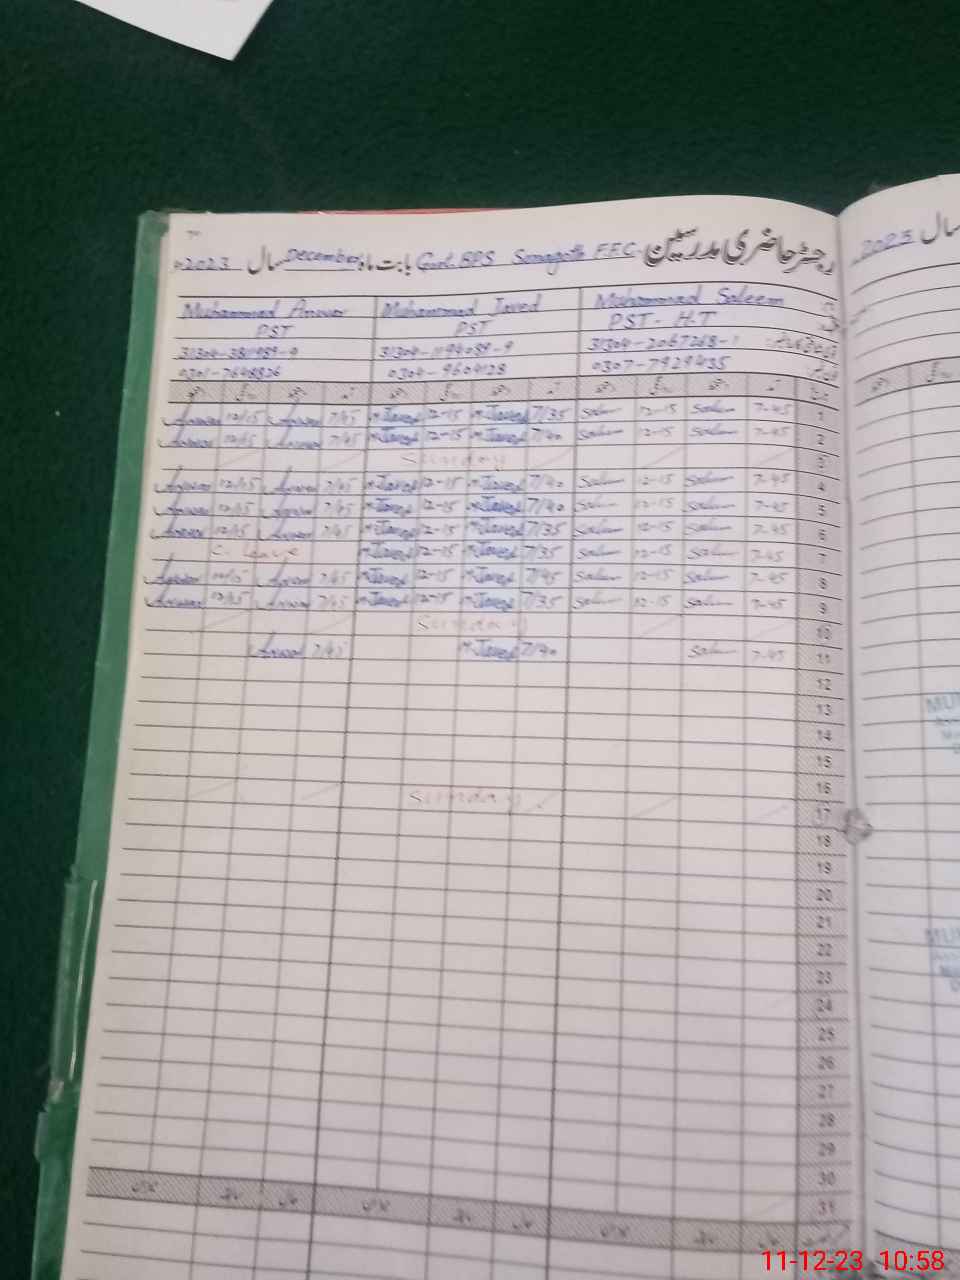 رجسٹر حاضری مدرسین Govt. BPS Sonagoth F.F.C. بابت ماہ December سال 2023ء
Muhammad Anwar Muhammad Javed Mohammad Saleem
PST PST PST-H.T
31304-1194089-9 31304-2067268-1
0301-7648826 0304-9604128 0307-7929435
Anwar 12/15 Anwar 7/45 M.Javed 12-15 M.Javed 7/35 Saleem 12-15 Saleem 7-45 1
Anwar 12/15 Anwar 7/45 M.Javed 12-15 M.Javed 7/40 Saleem 12-15 Saleem 7-45 2
Sunday 3
Anwar 12/15 Anwar 7/45 M.Javed 12-15 M.Javed 7/40 Saleem 12-15 Saleem 7-45 4
Anwar 12/15 Anwar 7/45 M.Javed 12-15 M.Javed 7/40 Saleem 12-15 Saleem 7-45 5
Anwar 12/15 Anwar 7/45 M.Javed 12-15 M.Javed 7/35 Saleem 12-15 Saleem 7-45 6
C. leave M.Javed 12-15 M.Javed 7/35 Saleem 12-15 Saleem 7-45 7
Anwar 12/15 Anwar 7/45 M.Javed 12-15 M.Javed 7/45 Saleem 12-15 Saleem 7-45 8
Anwar 12/15 Anwar 7/45 M.Javed 12-15 M.Javed 7/35 Saleem 12-15 Saleem 7-45 9
Sunday 10
Anwar 7/45 M.Javed 7/40 Saleem 7-45 11
12
13
14
15
16
Sunday 17
18
19
20
21
22
23
24
25
26
27
28
29
30
31
سال 2023
11-12-23 10:58